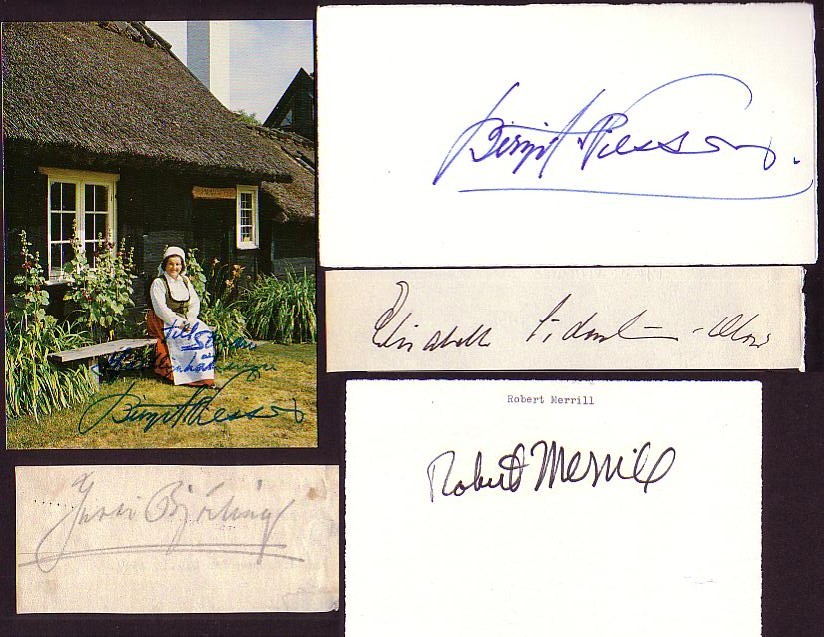 Birgit Nilsson
till
Birgit Nilsson
Elisabeth Söderström-Olow
Robert Merrill
Robert Merrill
Jussi Björling